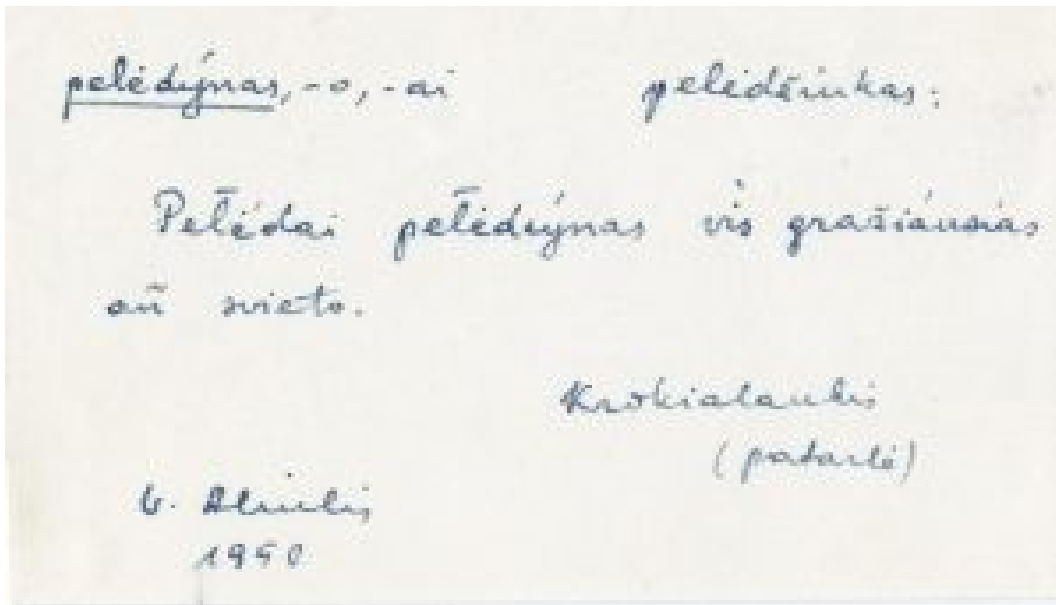 pelėdýnas, -o, -ai pelėdžiukas:
Pełėdai pełėdýnas vis gražiáusias
añ svieto.
Krokialaukis
(patarlė)
1950